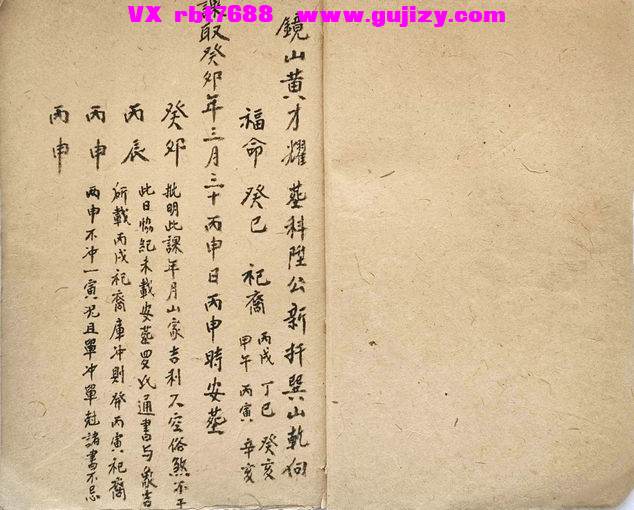 VX rbt7688 www.gujizy.com
鏡山黄才耀塟科陞公新扦巽山乾向
福命癸巳 祀裔 丙戌 丁巳 癸亥
甲午 丙寅 辛亥
課取癸卯年三月三十丙申日丙申時安塟
癸卯
丙辰
丙申
丙申
批明此課年月山家吉利天空俗煞不干
此日協紀未載安塟罗氏通書与象吉
所載丙戌祀裔庫冲則發丙寅祀裔
两申不冲一寅况且單冲單尅諸書不忌